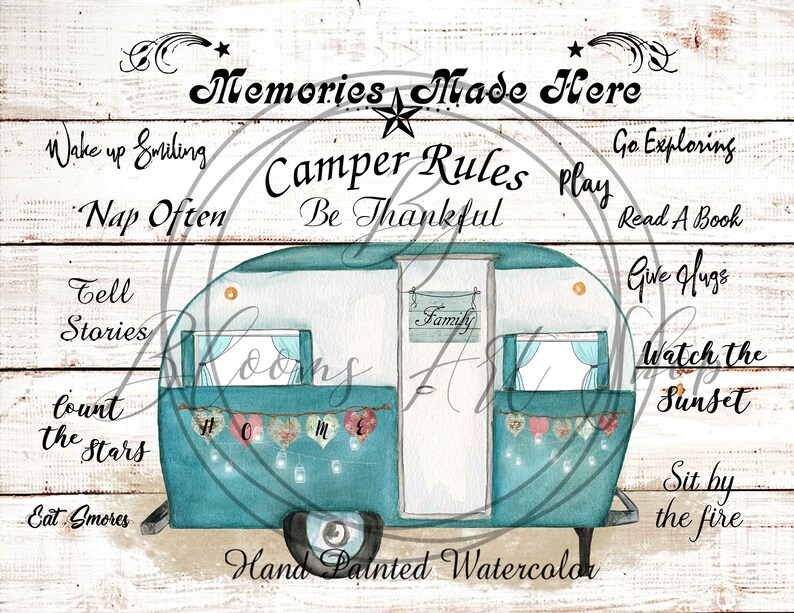 Memories Made Here
Camper Rules
Be Thankful
Wake up Smiling
Nap Often
Tell
Stories
Count
the Stars
Eat Smores
Go Exploring
Play
Read A Book
Give Hugs
Watch the
Sunset
Sit by
the fire
Family
HOME
By
Blooms Art Shop
Hand Painted Watercolor